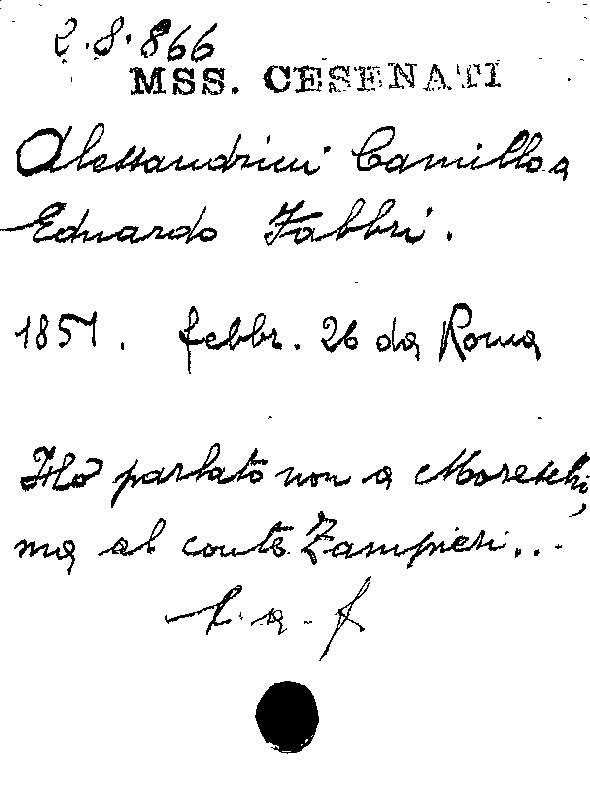 2.8.866
MSS. CESENATI
Alessandrini Camillo a
Eduardo Fabbri.
1851. febbr. 26 da Roma
Ho parlato non a Moreschi,
ma al conte Zampieri...
l. a. f